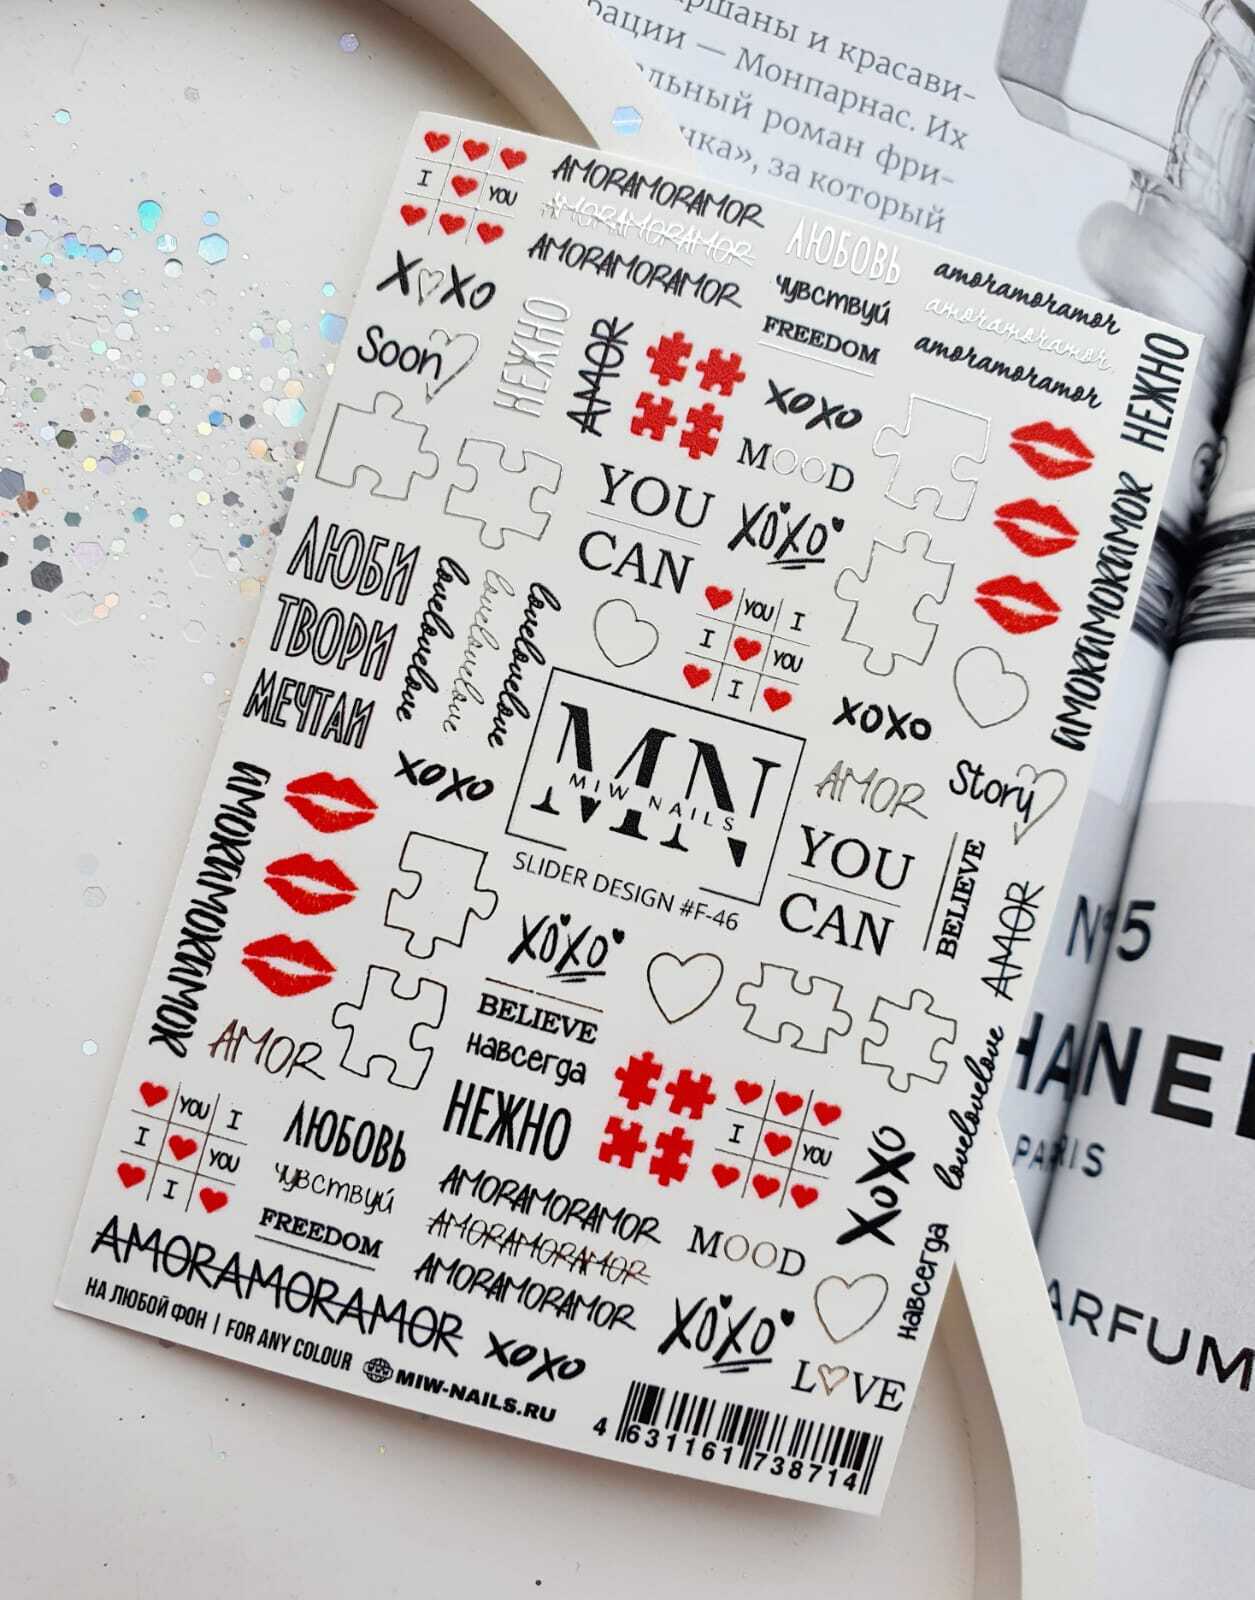 ршаны и красави-
рации — Монпарнас. Их
льный роман фри-
чка», за который
I YOU
AMORAMORAMOR
AMORAMORAMOR
AMORAMORAMOR
ЛЮБОВЬ
чувствуй
FREEDOM
amoramoramor
amoramoramor
amoramoramor
XOXO
Soon
НЕЖНО
AMOR
XOXO
MOOD
НЕЖНО
YOU
CAN
XOXO
AMORAMORAMOR
ЛЮБИ
ТВОРИ
МЕЧТАЙ
lovelovelove
lovelovelove
lovelovelove
YOU I
I YOU
I
XOXO
MN
MIW NAILS
SLIDER DESIGN #F-46
XOXO
AMOR
Story
YOU
CAN
BELIEVE
AMOR
AMORAMORAMOR
AMOR
XOXO
BELIEVE
навсегда
НЕЖНО
I YOU
XOXO
lovelovelove
YOU I
I YOU
I
ЛЮБОВЬ
чувствуй
FREEDOM
AMORAMORAMOR
AMORAMORAMOR
AMORAMORAMOR
MOOD
навсегда
AMORAMORAMOR
XOXO
XOXO
LOVE
НА ЛЮБОЙ ФОН | FOR ANY COLOUR
MIW-NAILS.RU
4 631161 738714
N°5
HANEL
PARIS
ARFUM